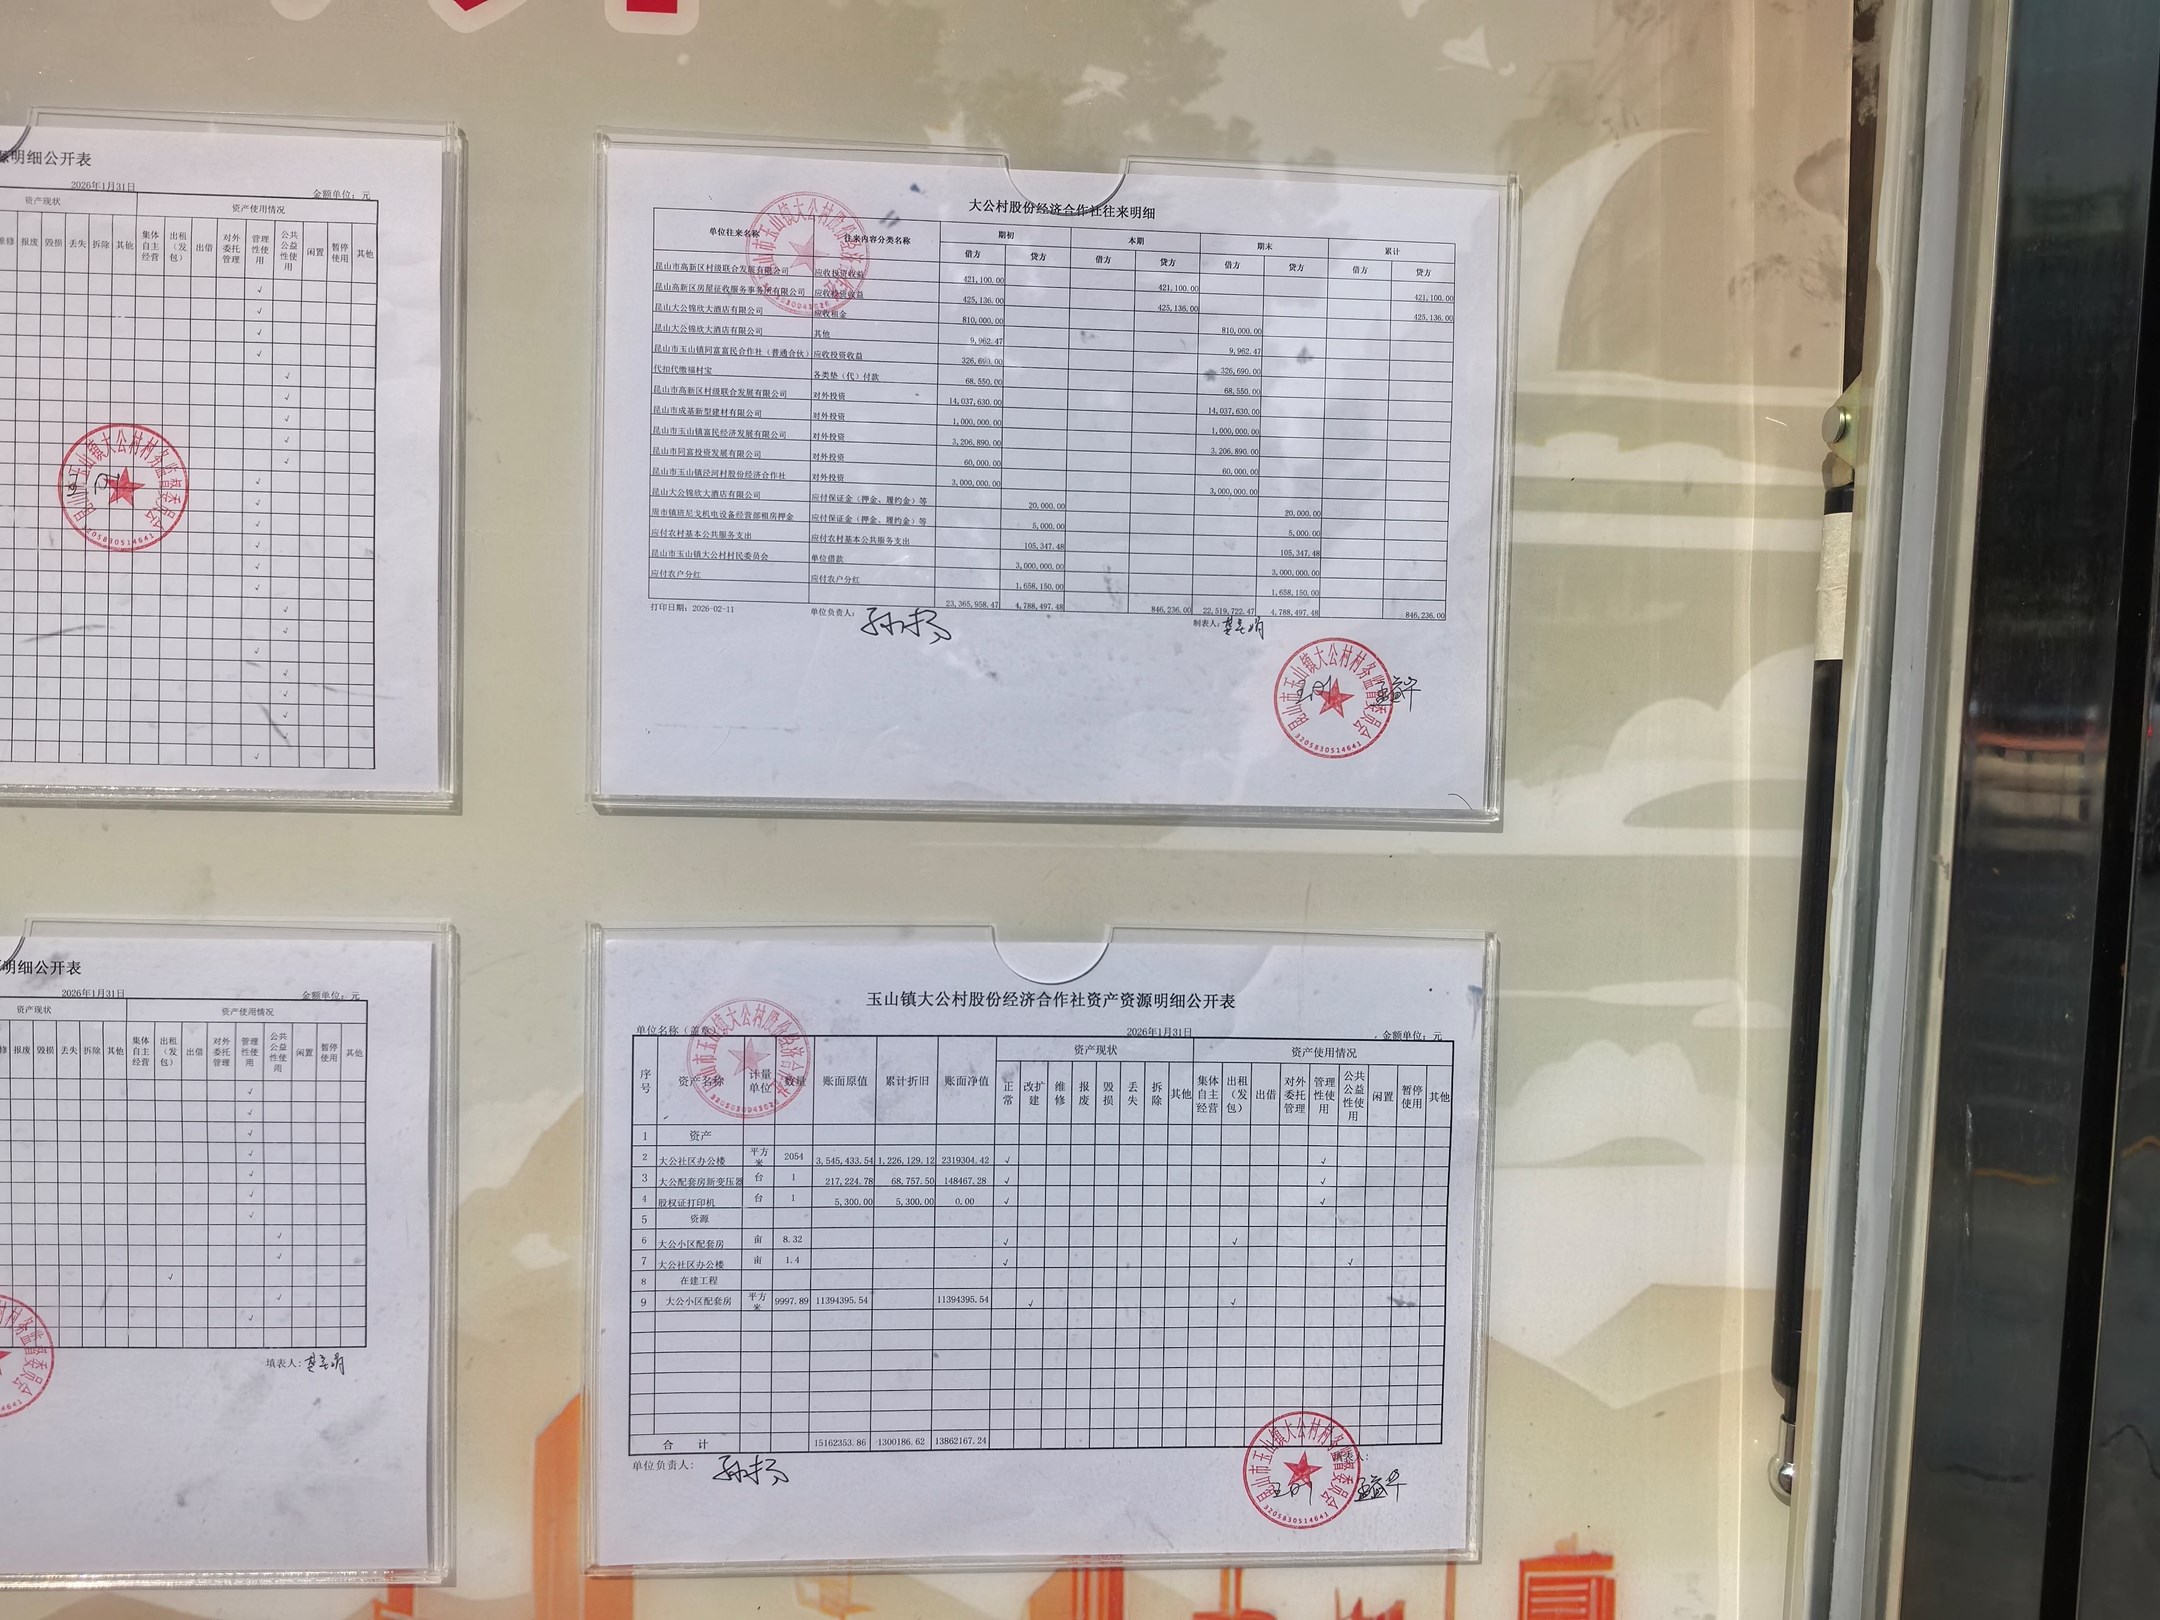 明细公开表
2026年1月31日
金额单位：元
资产现状
资产使用情况
报废 毁损 丢失 拆除 其他 集体自主经营 出租（发包） 出借 对外委托管理 管理性使用 公共公益性使用 闲置 暂停使用 其他
昆山市玉山镇大公村村务监督委员会
3205830514641
大公村股份经济合作社往来明细
单位往来名称 往来内容分类名称 期初 本期 期末 累计
借方 贷方 借方 贷方 借方 贷方 借方 贷方
昆山市高新区村级联合发展有限公司 应收投资收益 421,100.00 421,100.00 421,100.00
昆山高新区房屋征收服务事务所有限公司 应收投资收益 425,136.00 425,136.00 425,136.00
昆山大公锦欣大酒店有限公司 应收租金 810,000.00 810,000.00
昆山大公锦欣大酒店有限公司 其他 9,962.47 9,962.47
昆山市玉山镇同富富民合作社（普通合伙） 应收投资收益 326,690.00 326,690.00
代扣代缴福村宝 各类垫（代）付款 68,550.00 68,550.00
昆山市高新区村级联合发展有限公司 对外投资 14,037,630.00 14,037,630.00
昆山市成基新型建材有限公司 对外投资 1,000,000.00 1,000,000.00
昆山市玉山镇富民经济发展有限公司 对外投资 3,206,890.00 3,206,890.00
昆山市同富投资发展有限公司 对外投资 60,000.00 60,000.00
昆山市玉山镇泾河村股份经济合作社 对外投资 3,000,000.00 3,000,000.00
昆山大公锦欣大酒店有限公司 应付保证金（押金、履约金）等 20,000.00 20,000.00
周市镇班尼戈机电设备经营部租房押金 应付保证金（押金、履约金）等 5,000.00 5,000.00
应付农村基本公共服务支出 应付农村基本公共服务支出 105,347.48 105,347.48
昆山市玉山镇大公村村民委员会 单位借款 3,000,000.00 3,000,000.00
应付农户分红 应付农户分红 1,658,150.00 1,658,150.00
23,365,958.47 4,788,497.48 846,236.00 22,519,722.47 4,788,497.48 846,236.00
打印日期：2026-02-11 单位负责人：孙扬 制表人：
昆山市玉山镇大公村村务监督委员会
3205830514641
明细公开表
2026年1月31日
金额单位：元
资产现状
资产使用情况
报废 毁损 丢失 拆除 其他 集体自主经营 出租（发包） 出借 对外委托管理 管理性使用 公共公益性使用 闲置 暂停使用 其他
填表人：
玉山镇大公村股份经济合作社资产资源明细公开表
单位名称（盖章） 2026年1月31日 金额单位：元
序号 资产名称 计量单位 数量 账面原值 累计折旧 账面净值 资产现状 资产使用情况
正常 改扩建 维修 报废 毁损 丢失 拆除 其他 集体自主经营 出租（发包） 出借 对外委托管理 管理性使用 公共公益性使用 闲置 暂停使用 其他
1 资产
2 大公社区办公楼 平方米 2054 3,545,433.54 1,226,129.12 2319304.42 √ √
3 大公配套房新变压器 台 1 217,224.78 68,757.50 148467.28 √ √
4 股权证打印机 台 1 5,300.00 5,300.00 0.00 √ √
5 资源
6 大公小区配套房 亩 8.32 √ √
7 大公社区办公楼 亩 1.4 √ √
8 在建工程
9 大公小区配套房 平方米 9997.89 11394395.54 11394395.54 √ √
合计 15162353.86 1300186.62 13862167.24
单位负责人：孙扬
昆山市玉山镇大公村村务监督委员会
3205830514641